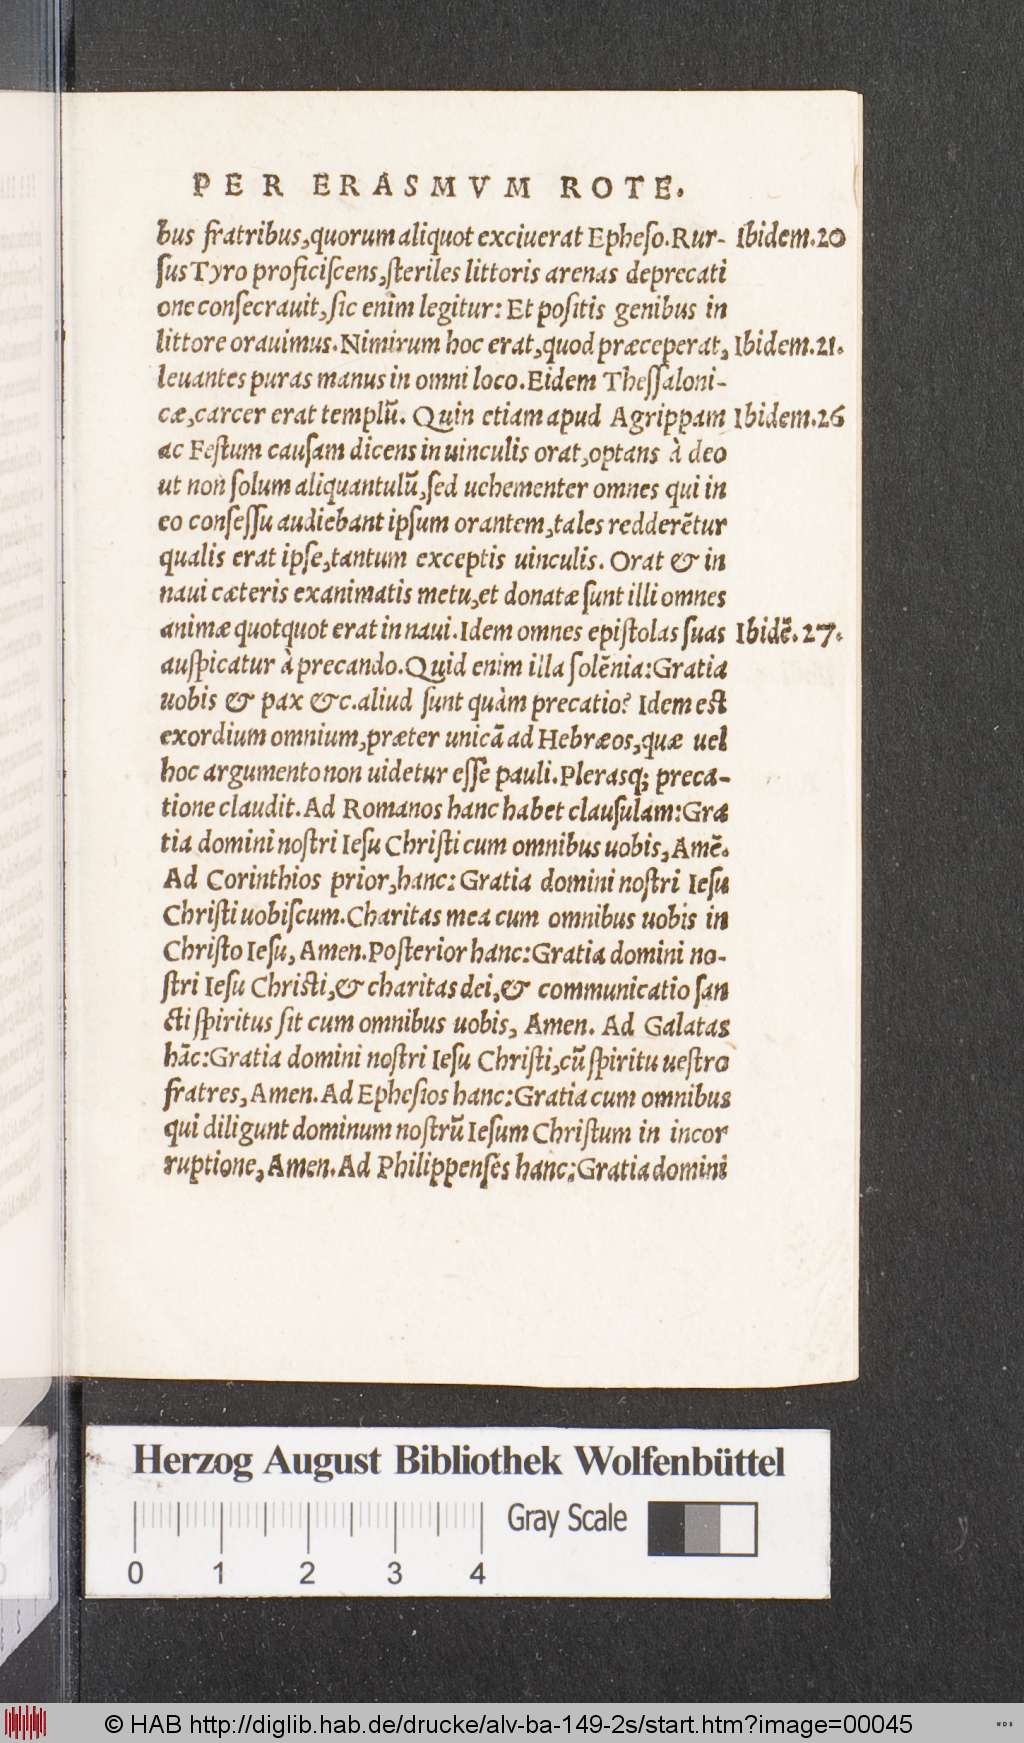 PER ERASMVM ROTE.
bus fratribus,quorum aliquot exciuerat Epheſo.Rur- Ibidem.20
ſus Tyro proficiſcens,ſteriles littoris arenas deprecati
one conſecrauit,ſic enim legitur: Et poſitis genibus in
littore orauimus.Nimirum hoc erat,quod præceperat, Ibidem.21.
leuantes puras manus in omni loco.Eidem Theſſaloni-
cæ,carcer erat templū. Quin etiam apud Agrippam Ibidem.26
ac Feſtum cauſam dicens in uinculis orat,optans à deo
ut non ſolum aliquantulū,ſed uehementer omnes qui in
eo conſeſſu audiebant ipſum orantem,tales redderētur
qualis erat ipſe,tantum exceptis uinculis. Orat & in
naui cæteris exanimatis metu,et donatæ ſunt illi omnes
animæ quotquot erat in naui.Idem omnes epiſtolas ſuas Ibidē.27.
auſpicatur à precando.Quid enim illa ſolēnia:Gratia
uobis & pax &c.aliud ſunt quàm precatio? Idem est
exordium omnium,præter unicā ad Hebræos,quæ uel
hoc argumento non uidetur eſſe pauli.Plerasq; preca-
tione claudit.Ad Romanos hanc habet clauſulam:Gra
tia domini noſtri Ieſu Chriſti cum omnibus uobis,Amē.
Ad Corinthios prior,hanc: Gratia domini noſtri Ieſu
Chriſti uobiſcum.Charitas mea cum omnibus uobis in
Chriſto Ieſu, Amen.Poſterior hanc:Gratia domini no-
ſtri Ieſu Christi,& charitas dei,& communicatio ſan
cti ſpiritus ſit cum omnibus uobis, Amen. Ad Galatas
hāc:Gratia domini noſtri Ieſu Chriſti,cū ſpiritu ueſtro
fratres,Amen.Ad Epheſios hanc:Gratia cum omnibus
qui diligunt dominum noſtrū Ieſum Chriſtum in incor
ruptione,Amen.Ad Philippenſes hanc:Gratia domini
Herzog August Bibliothek Wolfenbüttel
Gray Scale
0 1 2 3 4
© HAB http://diglib.hab.de/drucke/alv-ba-149-2s/start.htm?image=00045